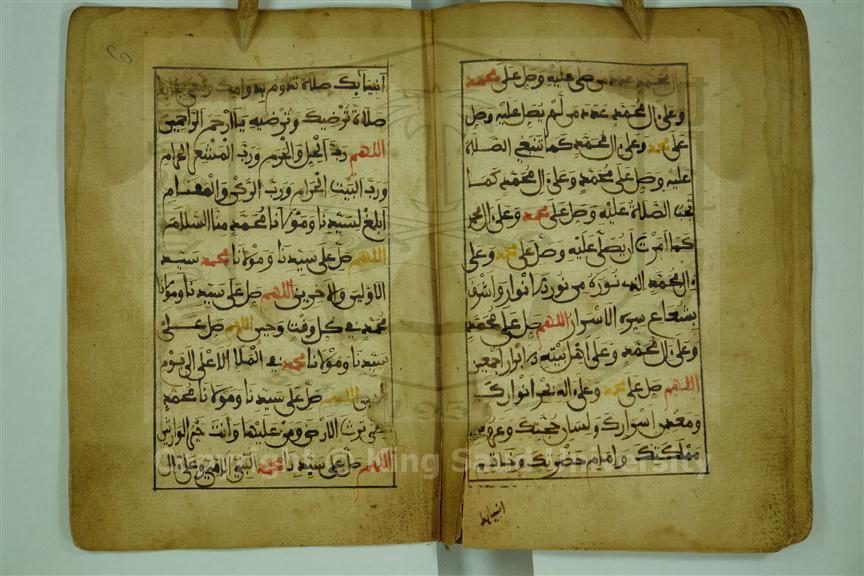 ال محمد عدد من صلى عليه وصل على محمد
وعلى ال محمد عدد من لم يصل عليه وصل
على محمد وعلى ال محمد كما تنبغي الصلاة
عليه وصل على محمد وعلى ال محمد كما
تجب الصلاة عليه وصل على محمد وعلى ال محمد
كما امرت ان يصلى عليه وصل على محمد وعلى
ال محمد الذي نوره من نور الانوار واشرق
بشعاع سره الاسرار اللهم صل على محمد
وعلى ال محمد وعلى اهل بيته الابرار اجمعين
اللهم صل على محمد وعلى اله بحر انوارك
ومعدن اسرارك ولسان حجتك وعروس
مملكتك وامام حضرتك وخاتم
انبيائك
انبيائك صلاة تدوم بدوامك وتبقى ببقائك
صلاة ترضيك وترضيه يا ارحم الراحمين
اللهم رب الحل والحرم ورب المشعر الحرام
ورب البيت الحرام ورب الركن والمقام
ابلغ لسيدنا ومولانا محمد منا السلام
اللهم صل على سيدنا ومولانا محمد سيد
الاولين والاخرين اللهم صل على سيدنا ومولانا
محمد في كل وقت وحين اللهم صل على
سيدنا ومولانا محمد في الملإ الاعلى الى يوم
الدين اللهم صل على سيدنا ومولانا محمد
حتى ترث الارض ومن عليها وانت خير الوارثين
اللهم صل على سيدنا محمد النبي الامي وعلى ال
Copyright © King Saud University
1957